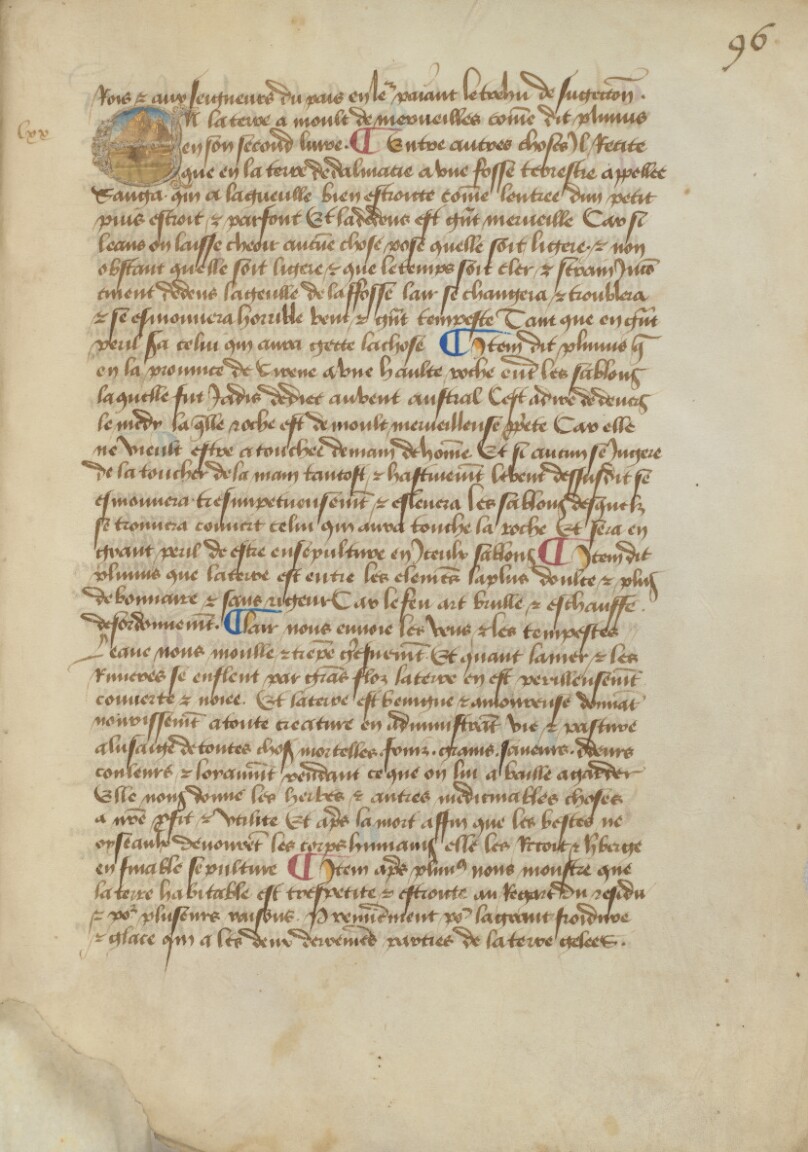 96
Rois ⁊ aux seigneurs du pais en le~ paiant le trehu de sugection~.
lxx
EN la terre a moult de merveilles com~e dit plinius
en son second livre. ¶ Entre autres choses Il Recite
que en la terre de dalmacie a une fosse terrestre appellee
Sauga qui a la gueulle bien estroitte com~e lentree dun petit
puis estroit ⁊ parfont Et la dedens est g~nt merveille Car si
leans on laisse cheoir aucu~e chose pose quelle soit ligere ⁊ non
obstant quelle soit ligere ⁊ que le temps soit cler ⁊ serain
dedens la geulle de la ffosse lair se changera ⁊ troublera
⁊ se esmouvera horrible vent ⁊ g~nt tempeste Tant que en g~nt
peril sera celui qui aura gette la chose ¶ Item dit plinius q~
en la province de Cirene a une haulte roche ent~e les sablons
laquelle fut Jadis dediee au vent austral Cest adire dedevers
le medy la q~lle roche est de moult merveilleuse Car elle
ne vieult estre a touchee de main de hom~e Et si aucun se Ingere
de la toucher de la main tantost ⁊ hastivem~t le vent dessusdit se
esmouvera tresimpetueusem~t ⁊ eslevera les sablons desquelz
se trouvera couvert celui qui aura touche la roche Et sera en
grant peril de estre ensepulture en Iceulx sablons ¶ Item dit
plinius que la terre est entre les elemens la plus doulce ⁊ plus
debonnaire ⁊ sans rigeur Car le feu art brulle ⁊ eschauffe
desordonneem~t. ¶ Lair nous envoie les vens ⁊ les tempestes
Leaue nous moulle ⁊ tre~pe Et quant la mer ⁊ les
Rivieres se enflent par gra~s floz la terre en est perilleusem~t
couverte ⁊ noiee. Et la terre est benigne ⁊ amoureuse donna~t
nourrissem~t a toute creature en administra~t vie ⁊ pasture
a lusaige de toutes chos~ mortelles. foinz. grains. saveurs. odeurs
couleurs ⁊ loyaum~t rendant ce que on lui a baille a garder
Elle nous donne les herbes ⁊ autres medicinables choses
a n~re p~fit ⁊ utilite Et ap~s la mort affin que les bestes ne
oyseaux devore~t les corps humains elle les Recoit ⁊ h~berge
en finable sepulture ¶ Item ap~s plini~ nous monstre que
la terre habitable est trespetite ⁊ estroitte au Regart du residu
⁊ po~ plusieurs raisons. Premierement po~ la grant froidure
⁊ glace qui a les deux derrenie~s parties de la terre gelees.